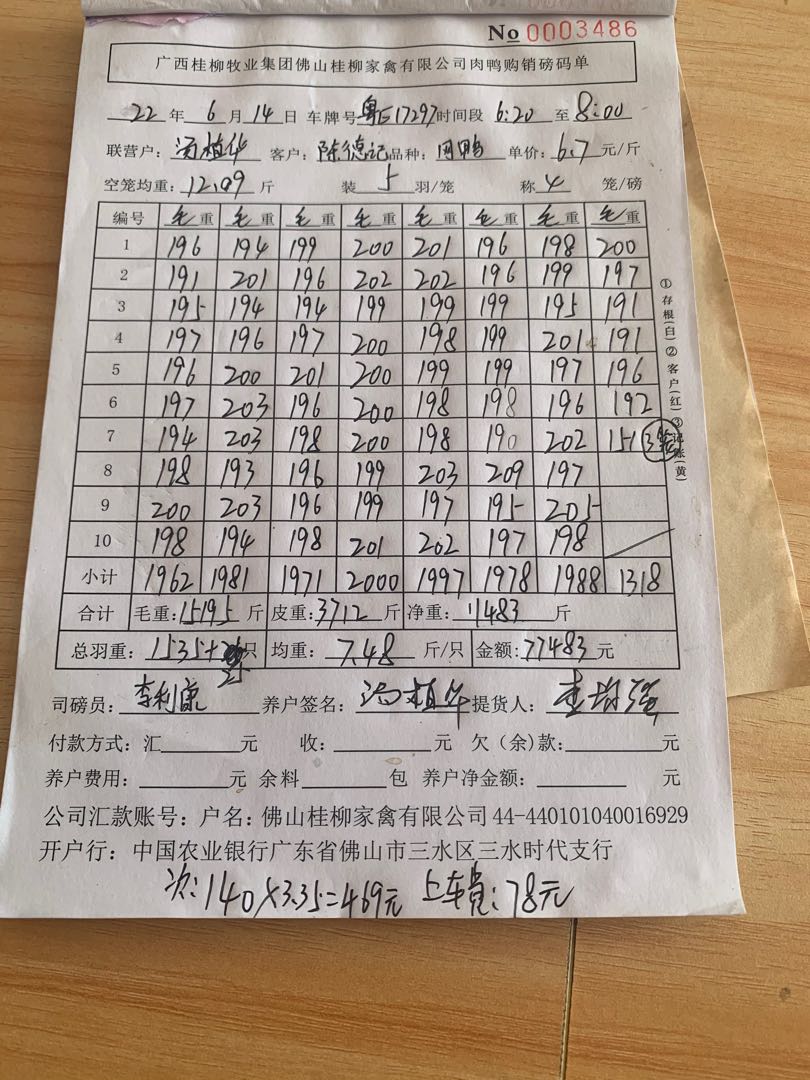 No 0003486
广西桂柳牧业集团佛山桂柳家禽有限公司肉鸭购销磅码单
22 年 6 月 14 日 车牌号 粤E17297 时间段 6:20 至 8:00
联营户: 汤植华 客户: 陈德记 品种: 肉鸭 单价: 6.7 元/斤
空笼均重: 12.09 斤 装 5 羽/笼 称 4 笼/磅
编号 毛重 毛重 毛重 毛重 毛重 毛重 毛重 毛重
1 196 194 199 200 201 196 198 200
2 191 201 196 202 202 196 199 197
3 195 194 194 199 199 199 195 191
4 197 196 197 200 198 199 201 191
5 196 200 201 200 199 199 197 196
6 197 203 196 200 198 198 196 192
7 194 203 198 200 198 190 202 151 3笼
8 198 193 196 199 203 209 197
9 200 203 196 199 197 195 205
10 198 194 198 201 202 197 198
小计 1962 1981 1971 2000 1997 1978 1988 1318
合计 毛重: 15195 斤 皮重: 3712 斤 净重: 11483 斤
总羽重: 1535+ 只 均重: 7.48 斤/只 金额: 77483 元
司磅员: 李利康 养户签名: 汤植华 提货人:
付款方式: 汇 元 收: 元 欠(余)款: 元
养户费用: 元 余料 包 养户净金额: 元
公司汇款账号: 户名: 佛山桂柳家禽有限公司 44-440101040016929
开户行: 中国农业银行广东省佛山市三水区三水时代支行
次: 140×3.35=469元 上车费: 78元
①存根(白)②客户(红)③记账(黄)